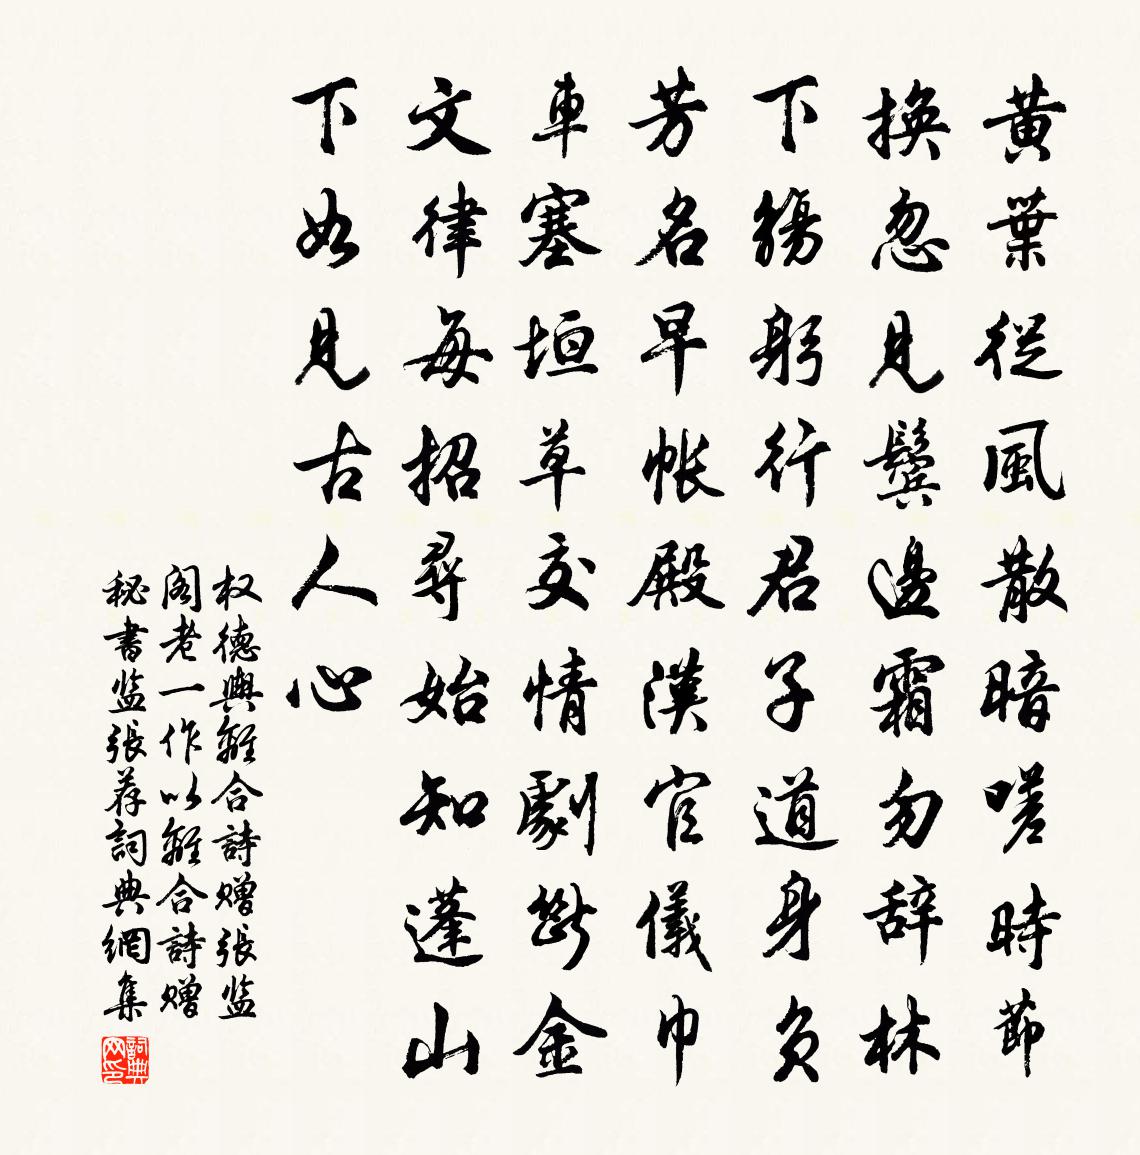 黄葉從風散暗嗟時節
換忽見鬢邊霜勿辞林
下觴躬行君子道身負
芳名早帳殿漢官儀巾
車塞垣草交情劇斷金
文律每招尋始知蓬山
下如見古人心
权德輿離合詩赠張监
阁老一作以離合詩赠
秘書监張荐詞典網集
詞典网印